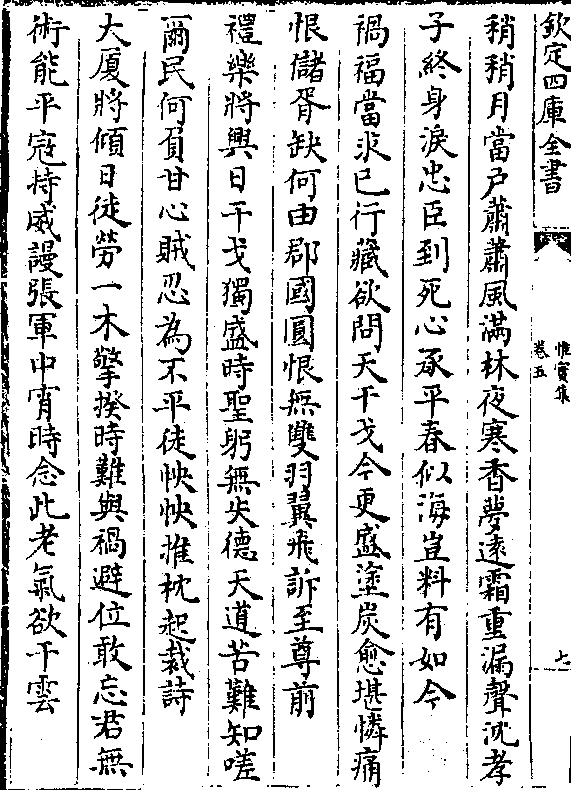 欽定四庫全書
惟實集
卷五
七
稍稍月當户蕭蕭風滿林夜寒香夢遠霜重漏聲沈孝
子終身淚忠臣到死心承平春似海豈料有如今
禍福當求已行藏欲問天干戈今更盛塗炭愈堪憐痛
恨儲胥缺何由郡國圓恨無雙羽翼飛訴至尊前
禮樂將興日干戈獨盛時聖躬無失德天道苦難知嗟
爾民何負甘心賊忍為不平徒怏怏推枕起裁詩
大厦將傾日徒勞一木擎揆時難與禍避位敢忘君無
術能平冦持威謾張軍中宵時念此老氣欲干雲